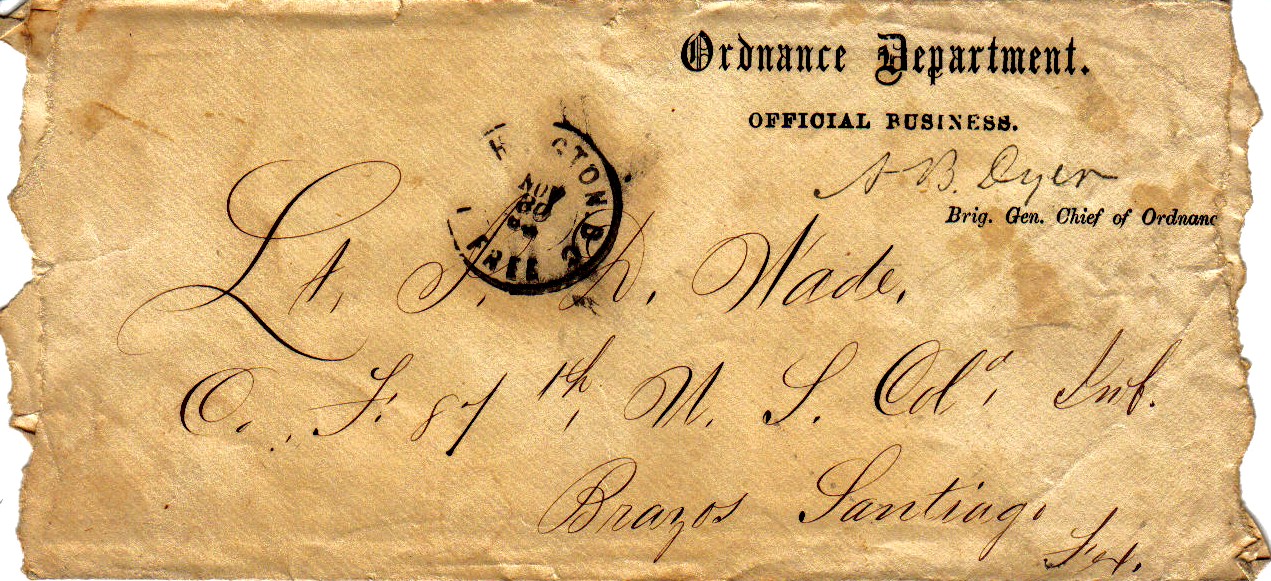 Ordnance Department.
OFFICIAL BUSINESS.
A B. Dyer
Brig. Gen. Chief of Ordnanc
GTON
NOV
FREE
Lt. Wade,
Co. F. 87th, U. S. Cold, Inf.
Brazos Santiago
Tex.